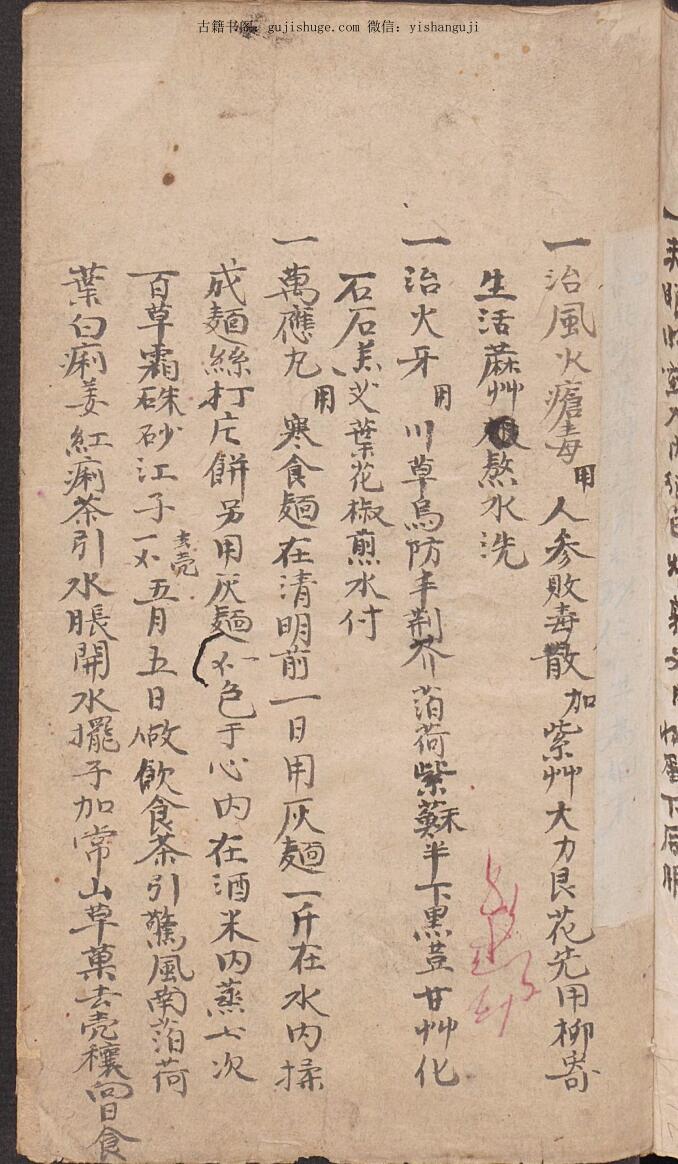 古籍书阁：gujishuge.com 微信：yishanguji
一治風火瘡毒用人參敗毒散加紫艸大力艮花先用柳寄
生活蔴艸熬水洗
一治火牙用川草烏防丰荆芥萡荷紫蘇半下黑荳甘艸化
石石羔艾葉花椒煎水付
一萬應丸用寒食麵在清明前一日用灰麵一斤在水内揉
成麵絲打片餅另用灰麵不色于心内在酒米内蒸七次
百草霜硃砂江子去壳一不五月五日做飲食茶引驚風南萡荷
葉白痢姜紅痢茶引水脹開水擺子加常山草菓去壳穰曾食